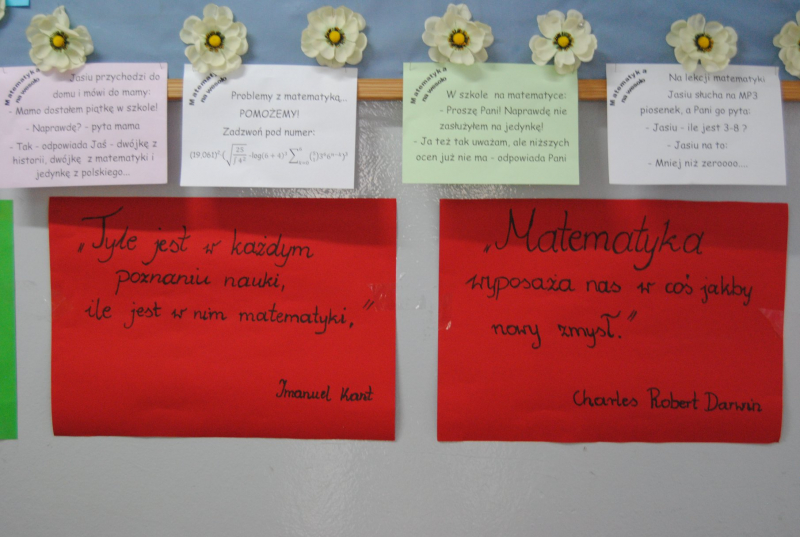 Matematyka
na wesoło
Jasiu przychodzi do
domu i mówi do mamy:
- Mamo dostałem piątkę w szkole!
- Naprawdę? - pyta mama
- Tak - odpowiada Jaś - dwójkę z
historii, dwójkę z matematyki i
jedynkę z polskiego...
Matematyka
na wesoło
Problemy z matematyką...
POMOŻEMY!
Zadzwoń pod numer:
Matematyka
na wesoło
W szkole na matematyce:
- Proszę Pani! Naprawdę nie
zasłużyłem na jedynkę!
- Ja też tak uważam, ale niższych
ocen już nie ma - odpowiada Pani
Matematyka
na wesoło
Na lekcji matematyki
Jasiu słucha na MP3
piosenek, a Pani go pyta:
- Jasiu - ile jest 3-8 ?
- Jasiu na to:
- Mniej niż zeroooo....
„Tyle jest w każdym
poznaniu nauki,
ile jest w nim matematyki."
Imanuel Kant
„Matematyka
wyposaża nas w coś jakby
nowy zmysł."
Charles Robert Darwin